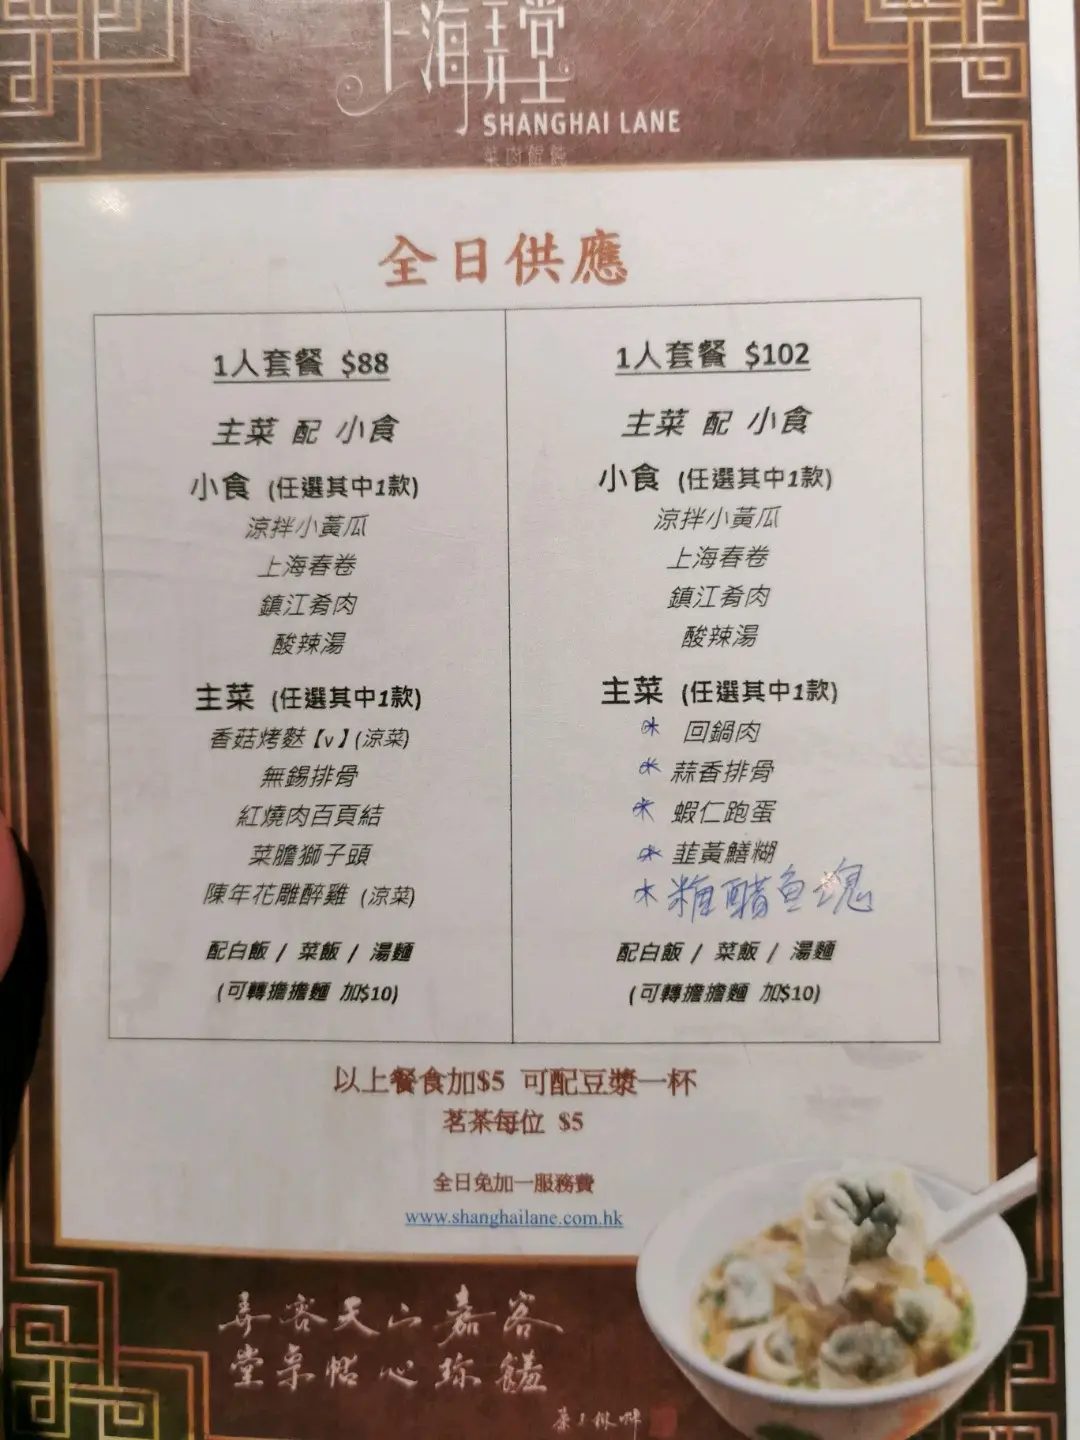 上海弄堂
SHANGHAI LANE
菜肉餛飩
全日供應
1人套餐 $88
主菜 配 小食
小食 (任選其中1款)
涼拌小黃瓜
上海春卷
鎮江肴肉
酸辣湯
主菜 (任選其中1款)
香菇烤麩【v】(涼菜)
無錫排骨
紅燒肉百頁結
菜膽獅子頭
陳年花雕醉雞 (涼菜)
配白飯 / 菜飯 / 湯麵
(可轉擔擔麵 加$10)
1人套餐 $102
主菜 配 小食
小食 (任選其中1款)
涼拌小黃瓜
上海春卷
鎮江肴肉
酸辣湯
主菜 (任選其中1款)
* 回鍋肉
* 蒜香排骨
* 蝦仁跑蛋
* 韮黃鱔糊
* 糖醋魚塊
配白飯 / 菜飯 / 湯麵
(可轉擔擔麵 加$10)
以上餐食加$5 可配豆漿一杯
茗茶每位 $5
全日免加一服務費
www.shanghailane.com.hk
弄客天山嘉客
堂桌帖心珍饈